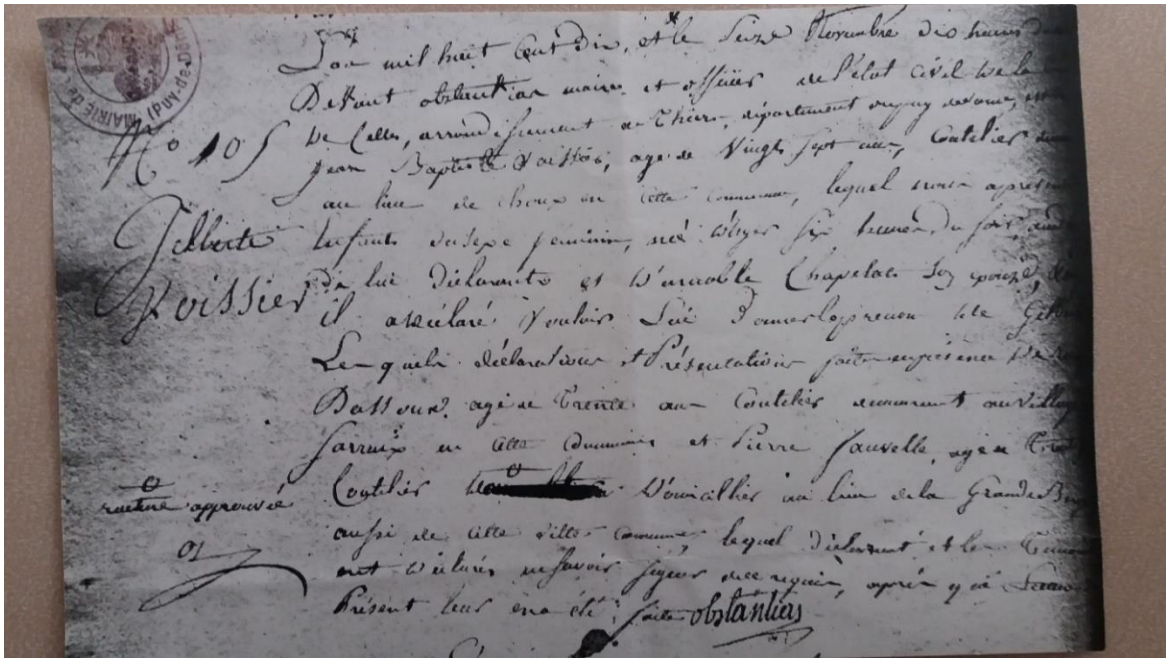 MAIRIE de
(Puy-de-Dôme)
L'an mil huit Cent Dix, et le Seize Novembre dix heures du
Devant obstantias maire et officier de l'état Civil de la
De Celles, arrondissement de Thiers, département du puy de dome,
No 105
Jean Baptiste Voissier, age de Vingt Sept ans, Coutelier
au lieu de Choux en cette commune, lequel nous a présenté
Gilberte
Voissier
Enfant du sexe feminin, né d'hyer six heures du soir,
De lui déclarant et Chapelas son epouze,
il a déclaré Vouloir Lui Donner le prenom de Gilberte
Lesquels déclarations et Présentations faite en présence de
Dassoux, age de Trente ans Coutelier demeurant au village
Sarraix en cette Commune et Pierre Sauvelle, age de
Coutelier Domicillier au lieu de la Grande
rature approuvé
aussi de cette ville commune, lequel Déclarant et les
ont déclarés ne savoir signer de ce requis, après
Présent leur en a été faite obstantias